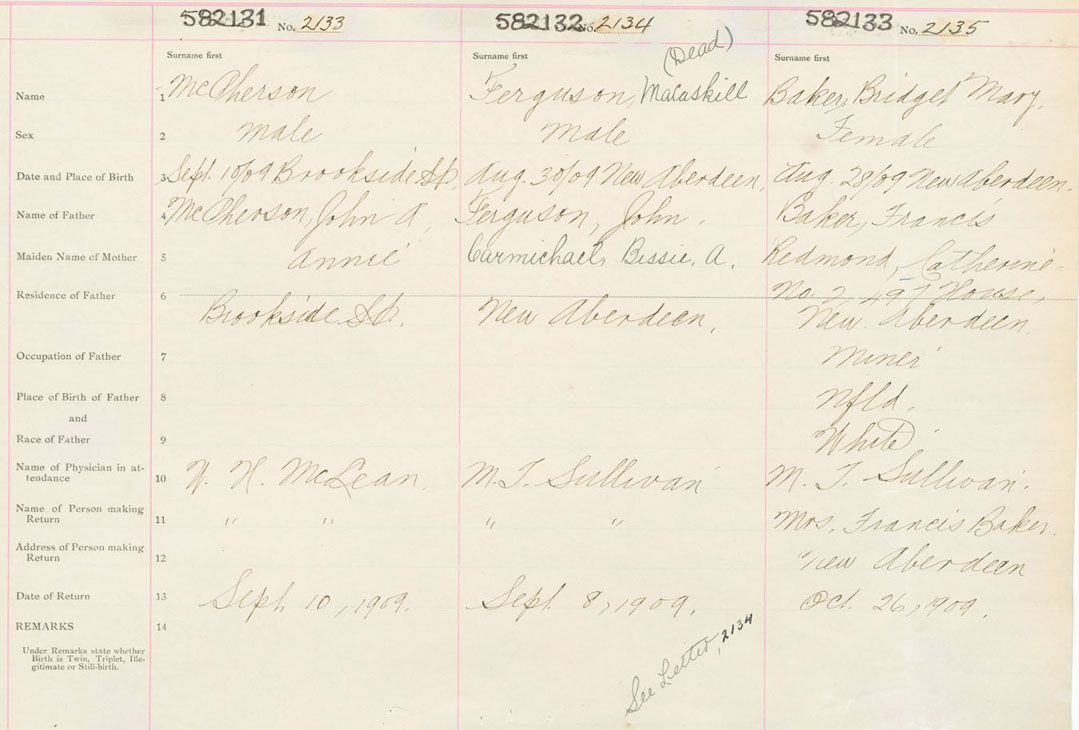 582131 No. 2133 582132 No. 2134 582133 No. 2135
(Dead)
Surname first Surname first Surname first
Name 1 McPherson Ferguson, Malaskill Baker, Bridget Mary.
Sex 2 Male Male Female
Date and Place of Birth 3 Sept. 10/09 Brookside St. Aug. 30/09 New Aberdeen, Aug. 28/09 New Aberdeen.
Name of Father 4 McPherson, John A, Ferguson, John. Baker, Francis
Maiden Name of Mother 5 Annie Carmichael, Bessie, A. Redmond, Catherine
No. 2, 497 House,
Residence of Father 6 Brookside St. New Aberdeen, New Aberdeen
Occupation of Father 7 Miner
Place of Birth of Father 8 Nfld.
and
Race of Father 9 White
Name of Physician in at-
tendance 10 McLean. M. T. Sullivan M. T. Sullivan.
Name of Person making
Return 11 " " " " Mrs. Francis Baker.
Address of Person making
Return 12 New Aberdeen
Date of Return 13 Sept. 10, 1909. Sept. 8, 1909. Oct. 26, 1909.
REMARKS 14
Under Remarks state whether
Birth is Twin, Triplet, Ille-
gitimate or Still-birth.
See Letter, 2134